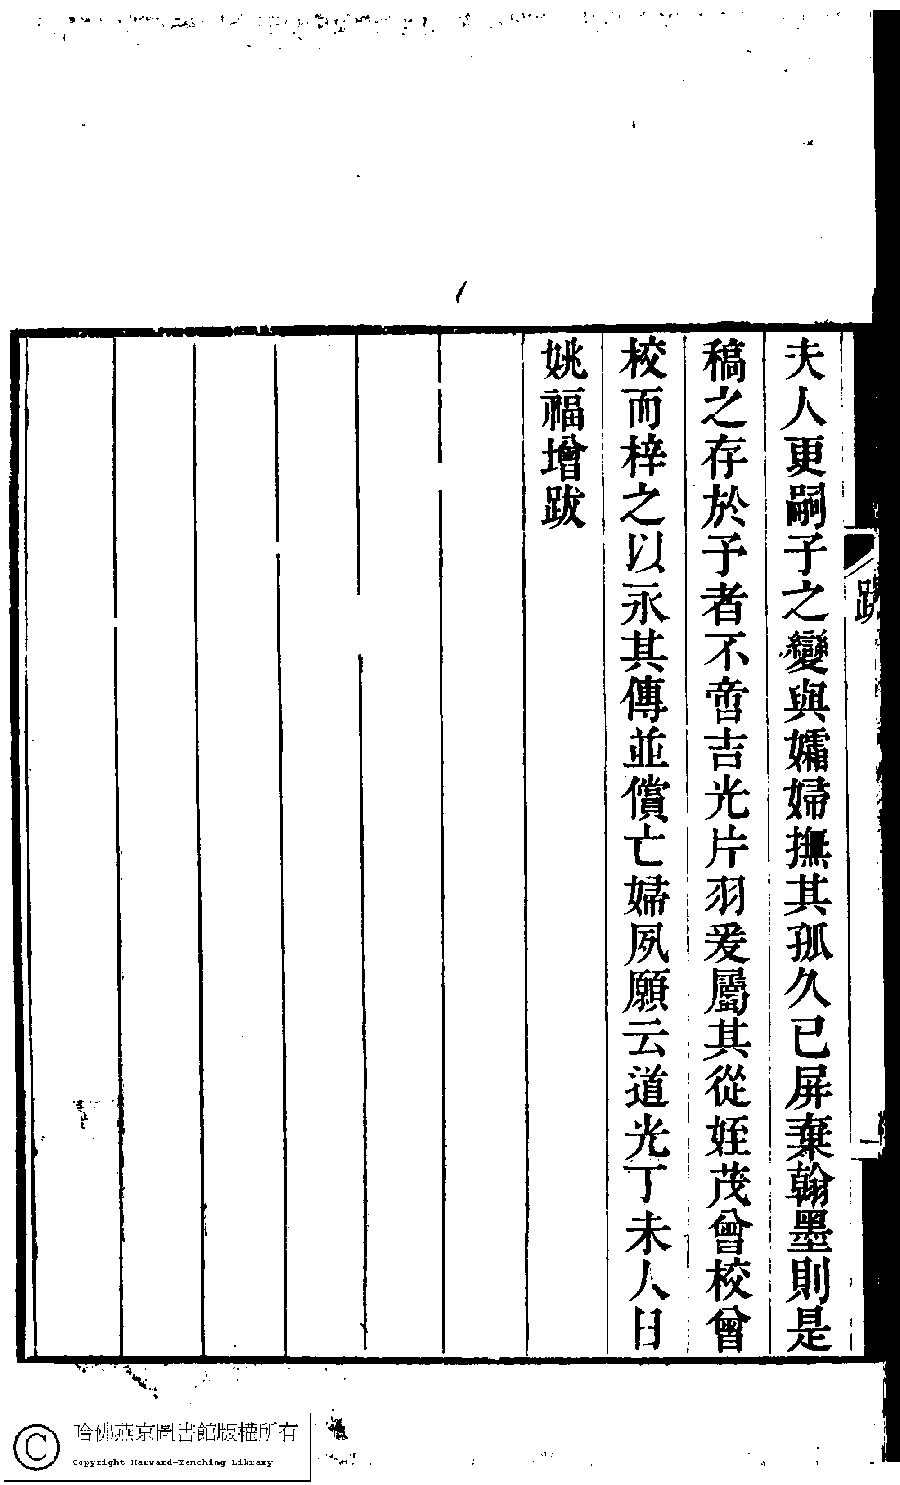 夫人更嗣子之變與孀婦撫其孤久已屏棄翰墨則是
稿之存於予者不啻吉光片羽爰屬其從姪茂曾校曾
校而梓之以永其傳並償亡婦夙願云道光丁未人日
姚福增跋
跋
一
哈佛燕京圖書館版權所有
Copyright Harvard-Yenching Library